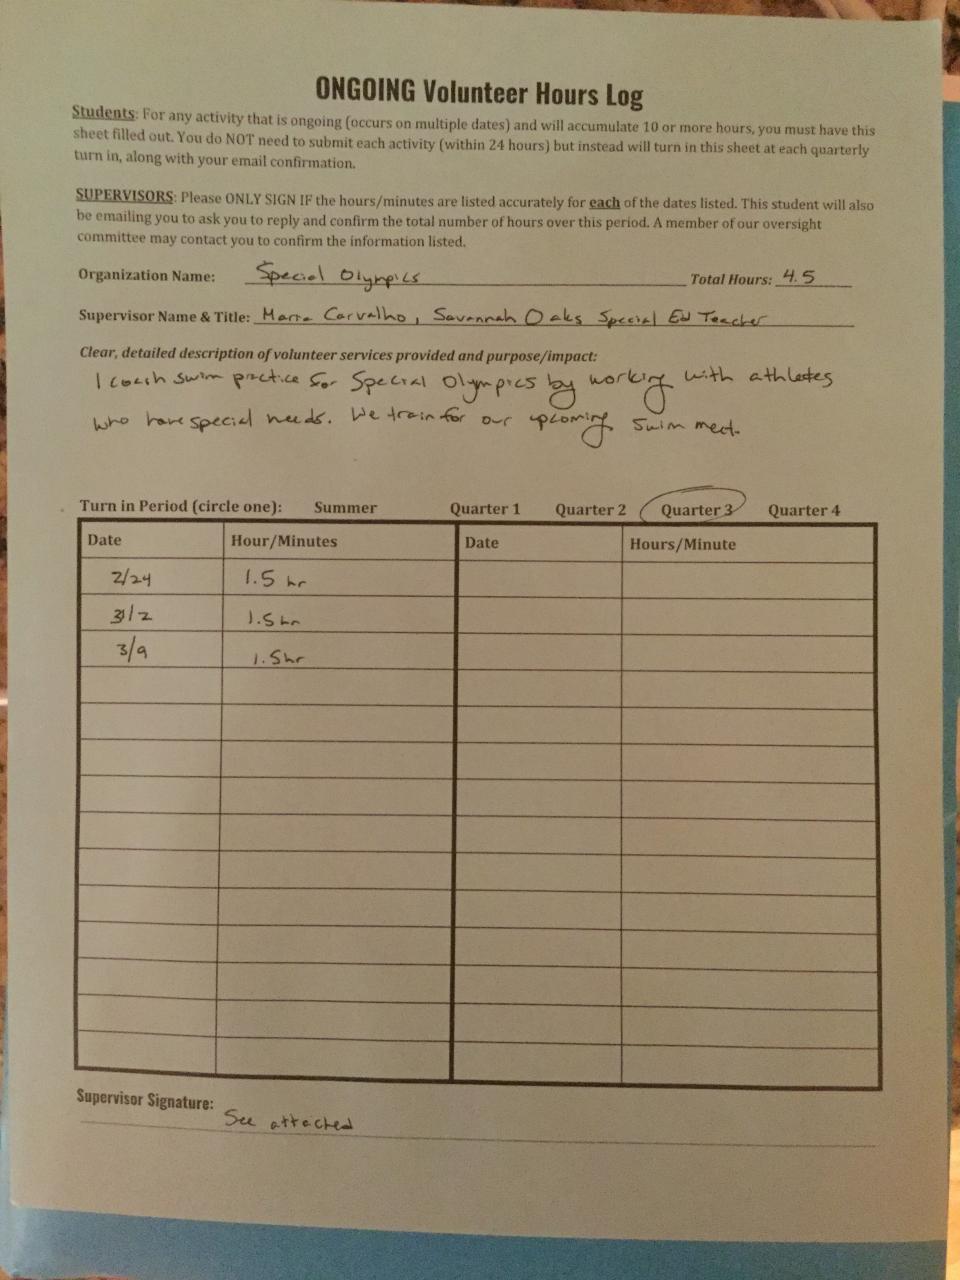 ONGOING Volunteer Hours Log
Students: For any activity that is ongoing (occurs on multiple dates) and will accumulate 10 or more hours, you must have this
sheet filled out. You do NOT need to submit each activity (within 24 hours) but instead will turn in this sheet at each quarterly
turn in, along with your email confirmation.
SUPERVISORS: Please ONLY SIGN IF the hours/minutes are listed accurately for each of the dates listed. This student will also
be emailing you to ask you to reply and confirm the total number of hours over this period. A member of our oversight
committee may contact you to confirm the information listed.
Organization Name: Special Olympics Total Hours: 4.5
Supervisor Name & Title: Carvalho, Savannah Oaks Special Ed Teacher
Clear, detailed description of volunteer services provided and purpose/impact:
I coach swim practice for Special Olympics by working with athletes
who have special needs. We train for our upcoming swim meet.
Turn in Period (circle one): Summer Quarter 1 Quarter 2 Quarter 3 Quarter 4
Date Hour/Minutes Date Hours/Minute
2/24 1.5 hr
3/2 1.5 hr
3/9 1.5hr
Supervisor Signature: See attached